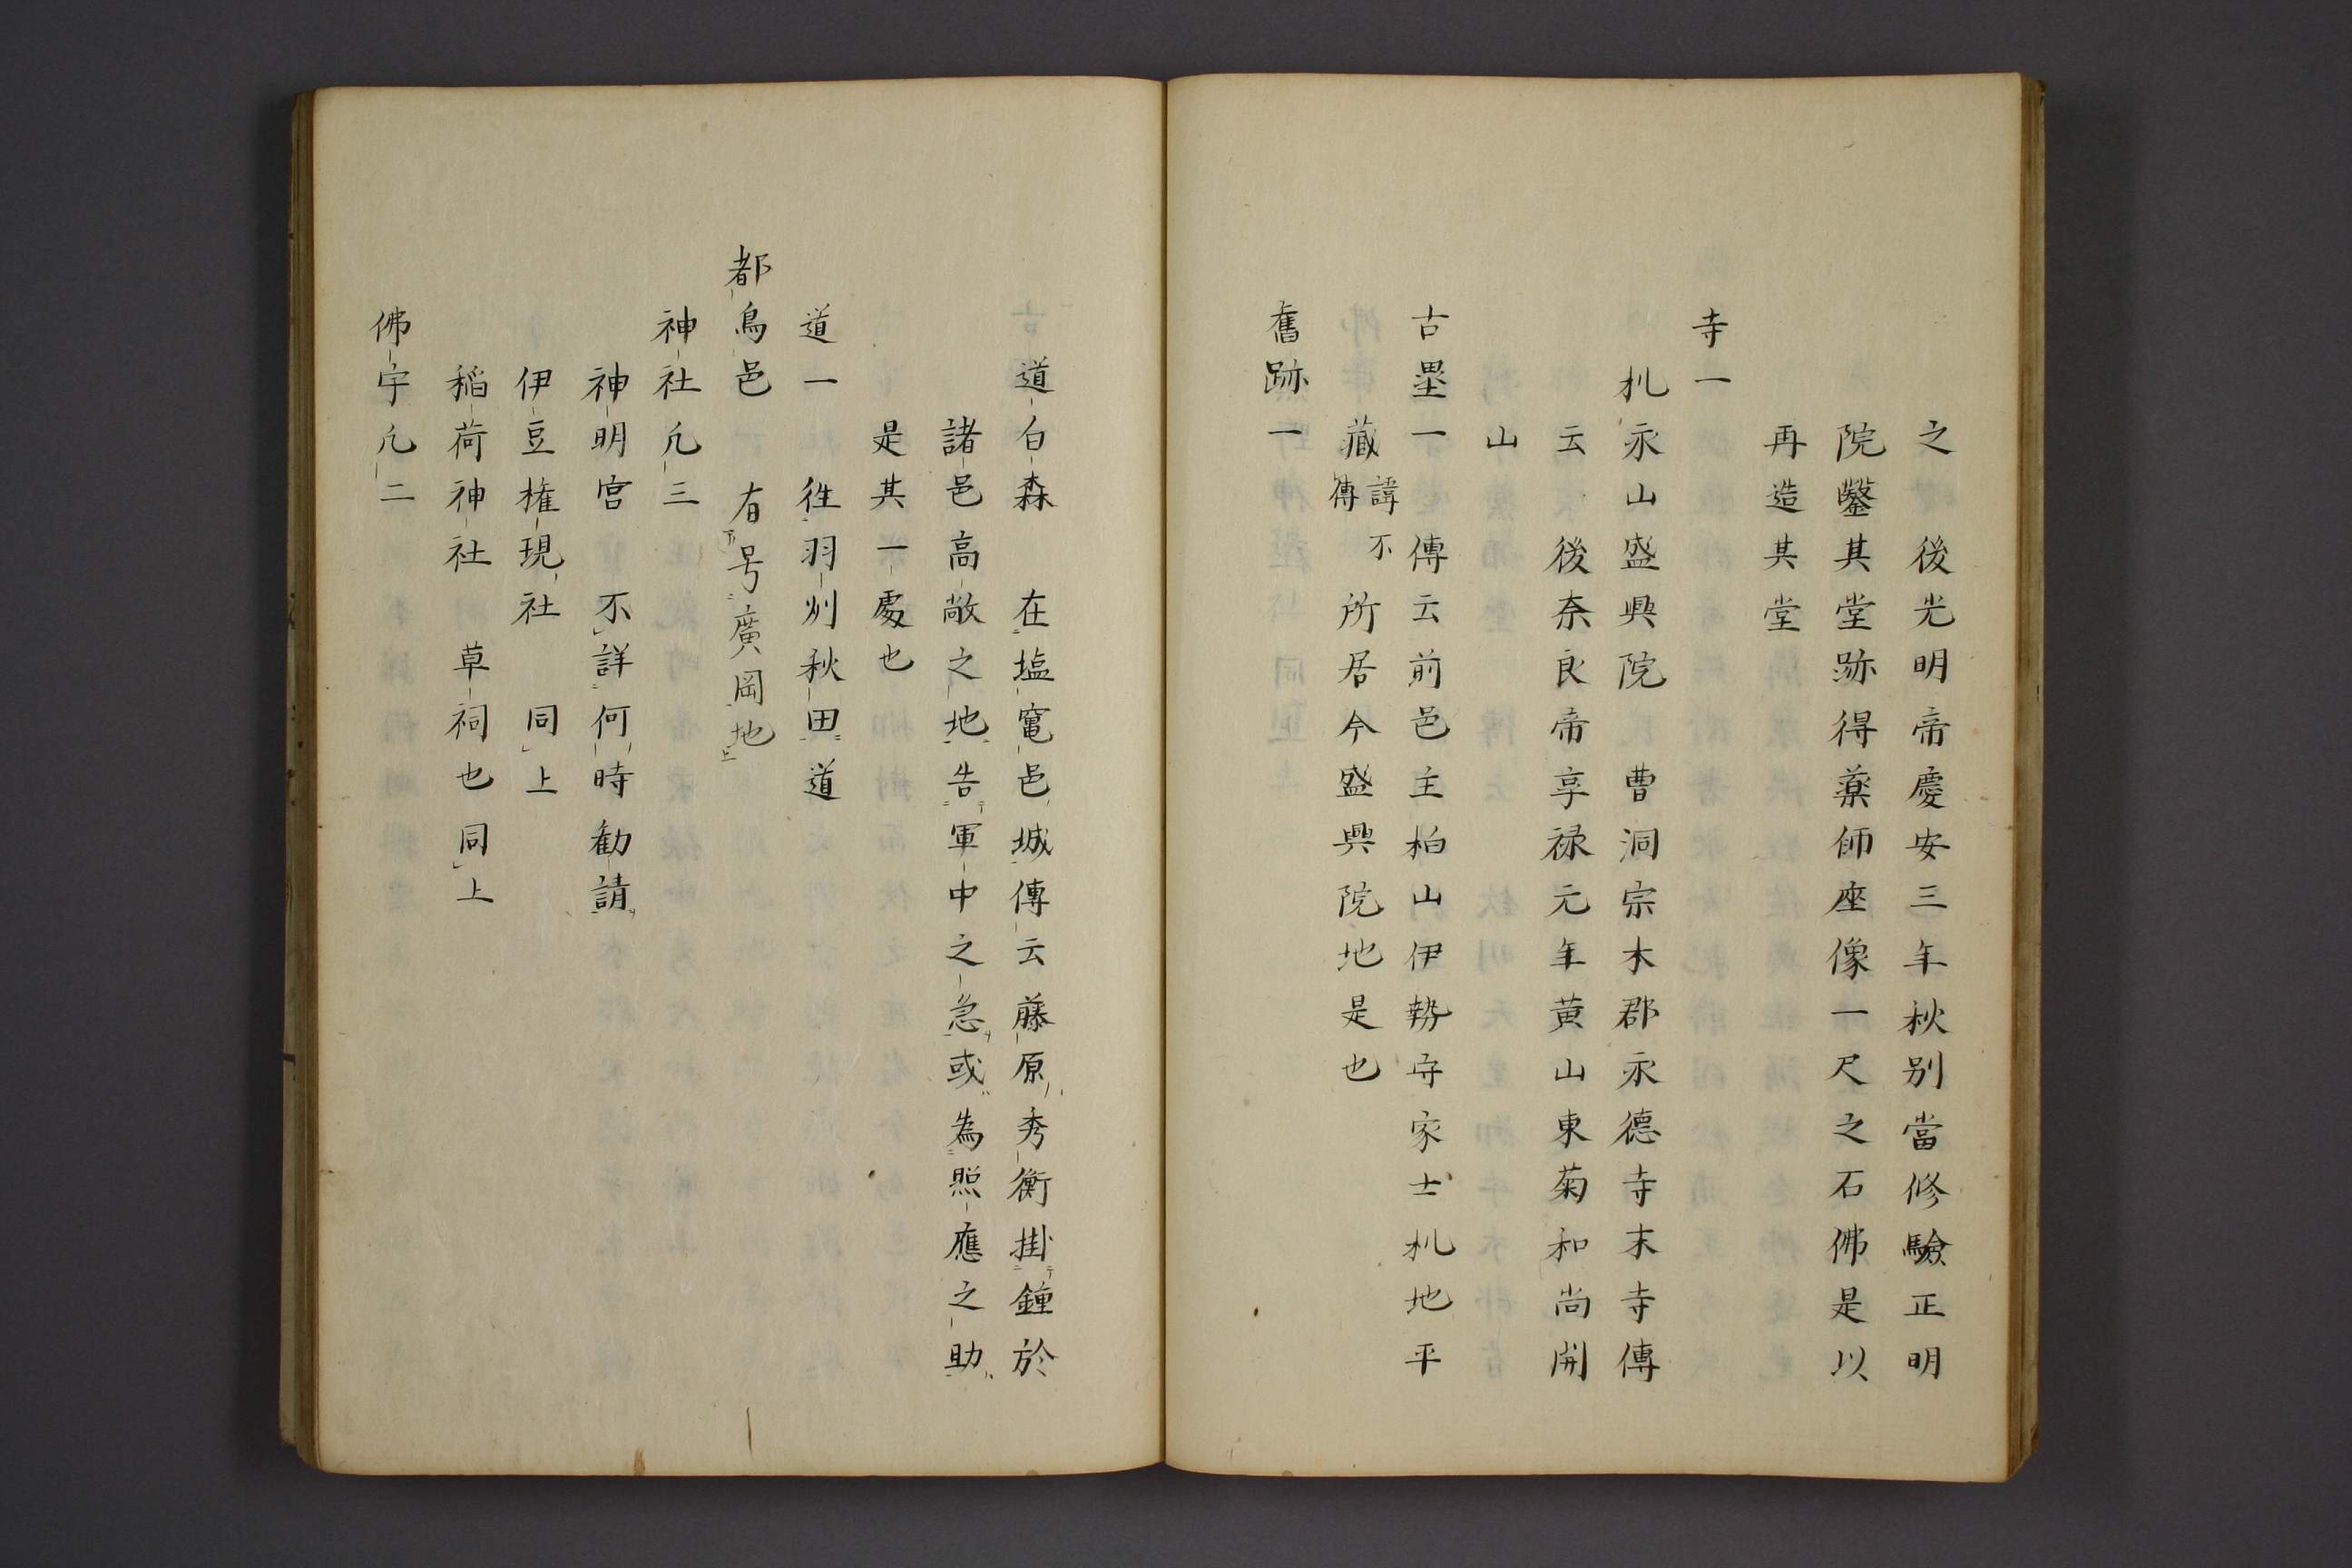 之　後光明帝慶安三年秋别當修驗正明
院鑿其堂跡得藥師座像一尺之石佛是以
再造其堂
寺一
朳永山盛興院　曹洞宗木郡永德寺末寺傳
云　後奈良帝享禄元年黄山東菊和尚開
山
古壘一　傳云前邑主柏山伊勢守家士朳地平
藏諱不傳　所居今盛興院地是也
舊跡一
道白森　在塩竃邑城傳云藤原秀衡掛鐘於
諸邑高敞之地告軍中之急或為照應之助
是其一處也
道一　徃羽州秋田道
都鳥邑　有号廣岡地
神社凢三
神明宮　不詳何時勧請
伊豆権現社　同上
稲荷神社　草祠也同上
佛宇凢二